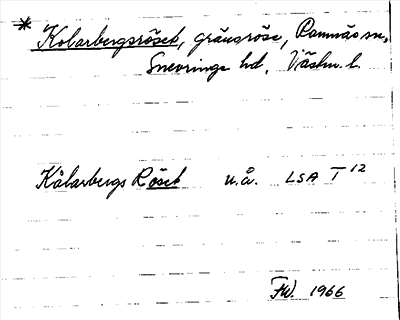 * Kolarbergsröset, gränsröse, Ramnäs sn,
Snevringe hd, Västm. l.
Kålarbergs Rööset u.å. LSA T 12
FW. 1966